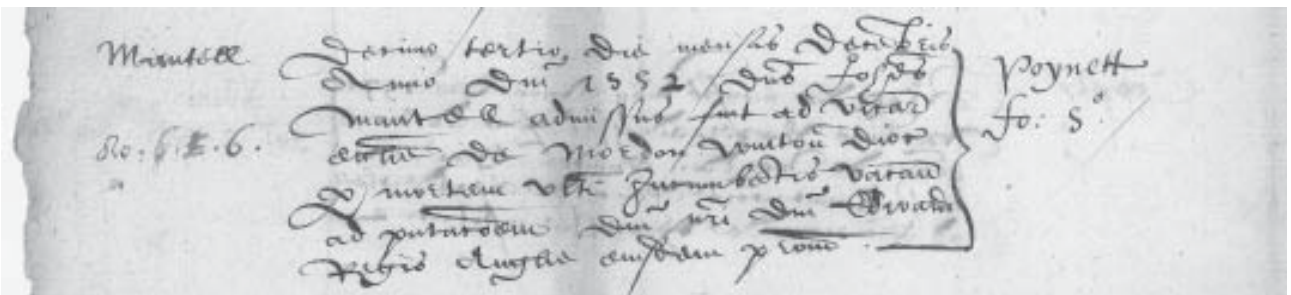 Mantell
Decimo tertio die mensis Decēbris
Anno Dnī 1552 Dns Johēs
Mantell admissus fuit ad vicar
ecclie de Mordon Winton Dioc
p mortem ultī Incumbētis vacan
ad pntacoem Dnī nrī Dnī Edwardi
Regis Anglie eiusdem
Poynett
fo: 5°